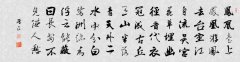 鳳凰臺上
鳳凰游鳳
去臺空江
自流吳宮
花草埋幽
徑晉代衣
冠成古丘
三山半落
青天外二
水中分白
鷺洲總為
浮雲能蔽
日長安不
見使人愁